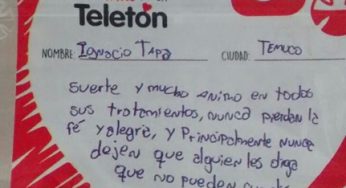 Teletón
NOMBRE: Ignacio Tapa CIUDAD: Temuco
Suerte y mucho animo en todos
sus tratamientos, nunca pierdan la
fé y alegría, y Principalmente nunca
dejen que alguien les diga
que no pueden